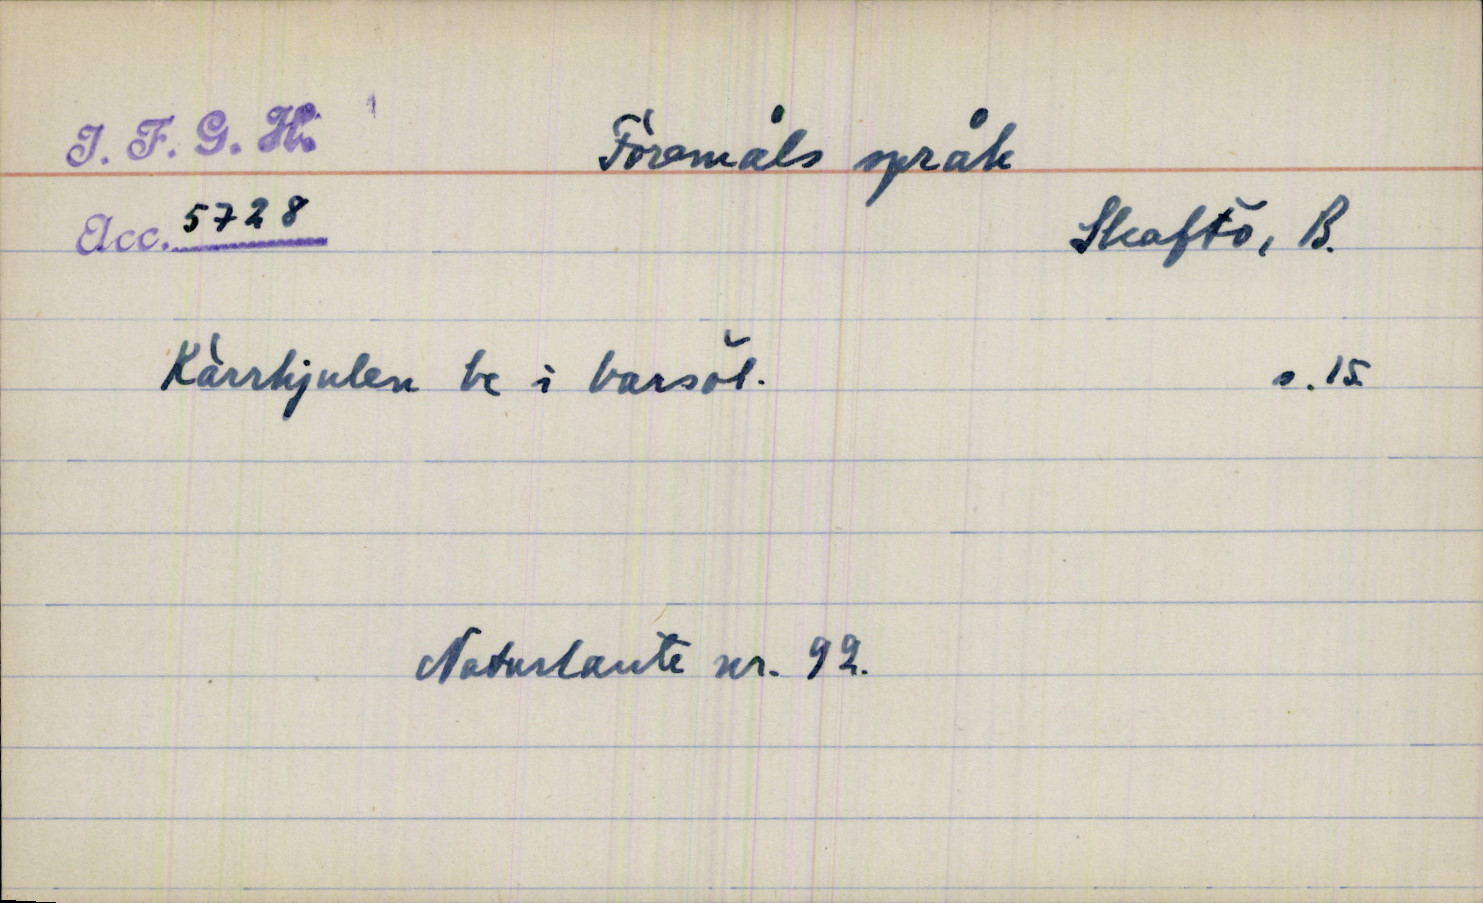 I. F. G. H.
Föremåls språk
Acc. 5728
Skaftö, B.
Kärrhjulen be i barsöl. s. 15.
Naturlaute nr. 92.